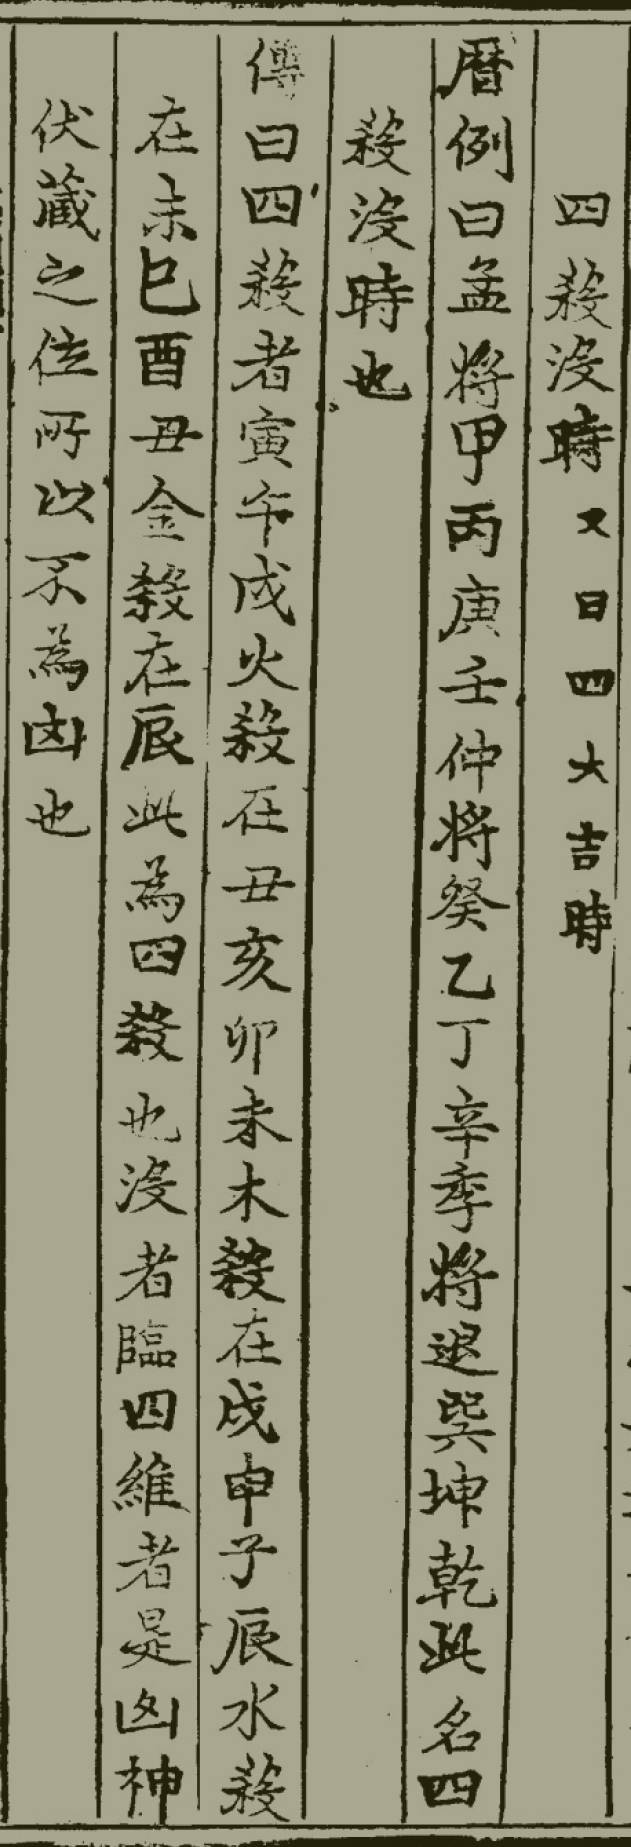 四殺沒時又曰四大吉時
暦例曰孟将甲丙庚壬仲将癸乙丁辛季将退巽坤乾此名四
殺沒時也
傳曰四殺者寅午戌火殺在丑亥卯未木殺在戌申子辰水殺
在未巳酉丑金殺在辰此為四殺也沒者臨四維者是凶神
伏蔵之位所以不為凶也